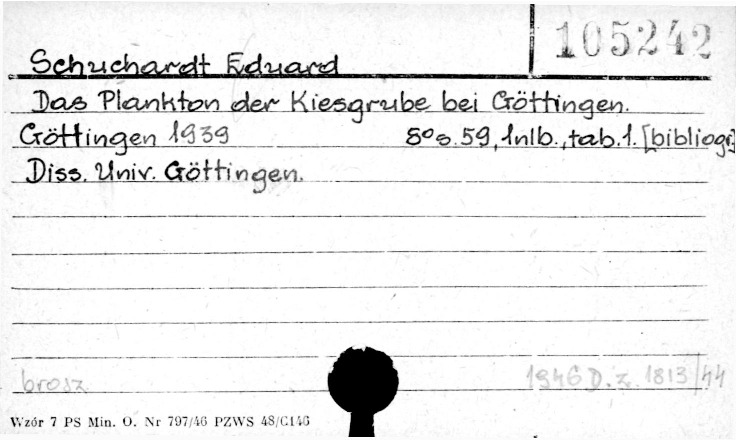 105242
Schuchardt Eduard
Das Plankton der Kiesgrube bei Göttingen.
Göttingen 1939 8° s. 59, 1nlb., tab. 1. [bibliogr.]
Diss. Univ. Göttingen.
brosz 1946 D. z. 1813/44
Wzór 7 PS Min. O. Nr 797/46 PZWS 48/C146